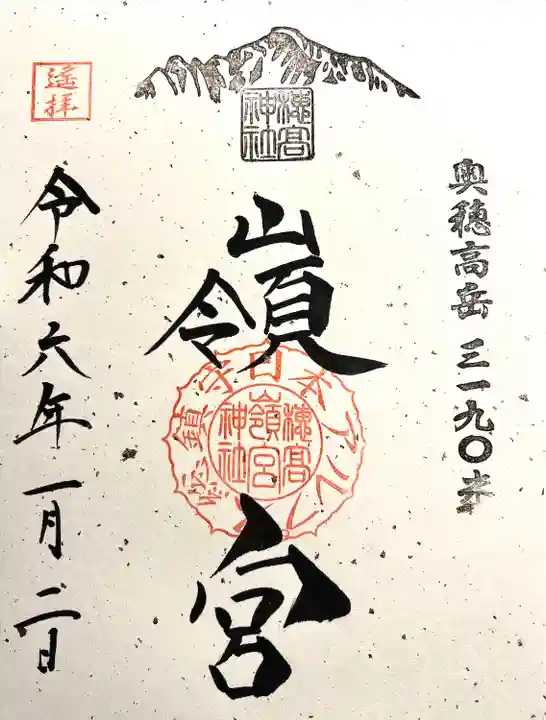 奥穂高岳 三一九〇米
穂高
神社
嶺宮
日本アルプス総鎮守
穂髙
嶺宮
神社
遙拝
令和六年一月二日